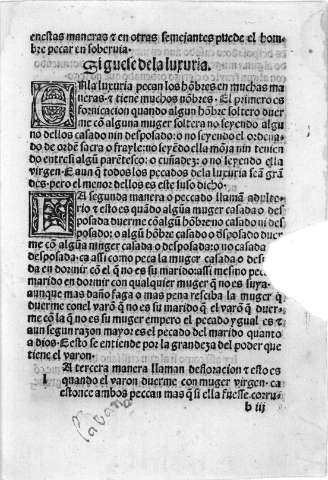 en estas maneras ⁊ en otras semejantes puede el hom-
bre pecar en soberuia.
Siguese de la luxuria.
EN la luxuria pecan los hõbres en muchas ma
neras. ⁊ tiene muchos nõbres. El primero es
fornicacion quando algun hõbre soltero duer
me cõ alguna muger soltera no seyendo algu
no dellos casado nin desposado: o no seyendo el ordena
do de ordẽ sacra o frayle: no seyẽdo ella mõja nin tenien
do entre si algũ parẽtesco: o cuñadez: o no leyendo ella
virgen. E aun q̃ todos los pecados de la luxuria seã grã
des. pero el menor dellos es este suso dicho.
LA segunda manera o peccado llamã adulte-
rio ⁊ esto es quãdo algũa muger casada o des
posada duerme cõ algũ hõbre no casado ni des
posado: o algũ hõbre casado o desposado duer
me cõ algũa muger casada o desposada: o no casada
desposada. ca assi como peca la muger casada o des
da en dormir cõ el q̃ no es su marido: assi mesmo pec
marido en dormir con qualquier muger q̃ no es suya.
aunque mas daño faga o mas pena resciba la muger q̃
duerme con el varõ q̃ no es su marido q̃ el varõ q̃ duer-
me cõ la q̃ no es su muger empero el pecado ygual es ⁊
aun segun razon mayor es el pecado del marido quanto
a dios. Esto se entiende por la grandeza del poder que
tiene el varon.
LA tercera manera llaman defloracion ⁊ esto es
quando el varon duerme con muger virgen. ca
estonce ambos peccan mas q̃ si ella fuesse corru-
b iij